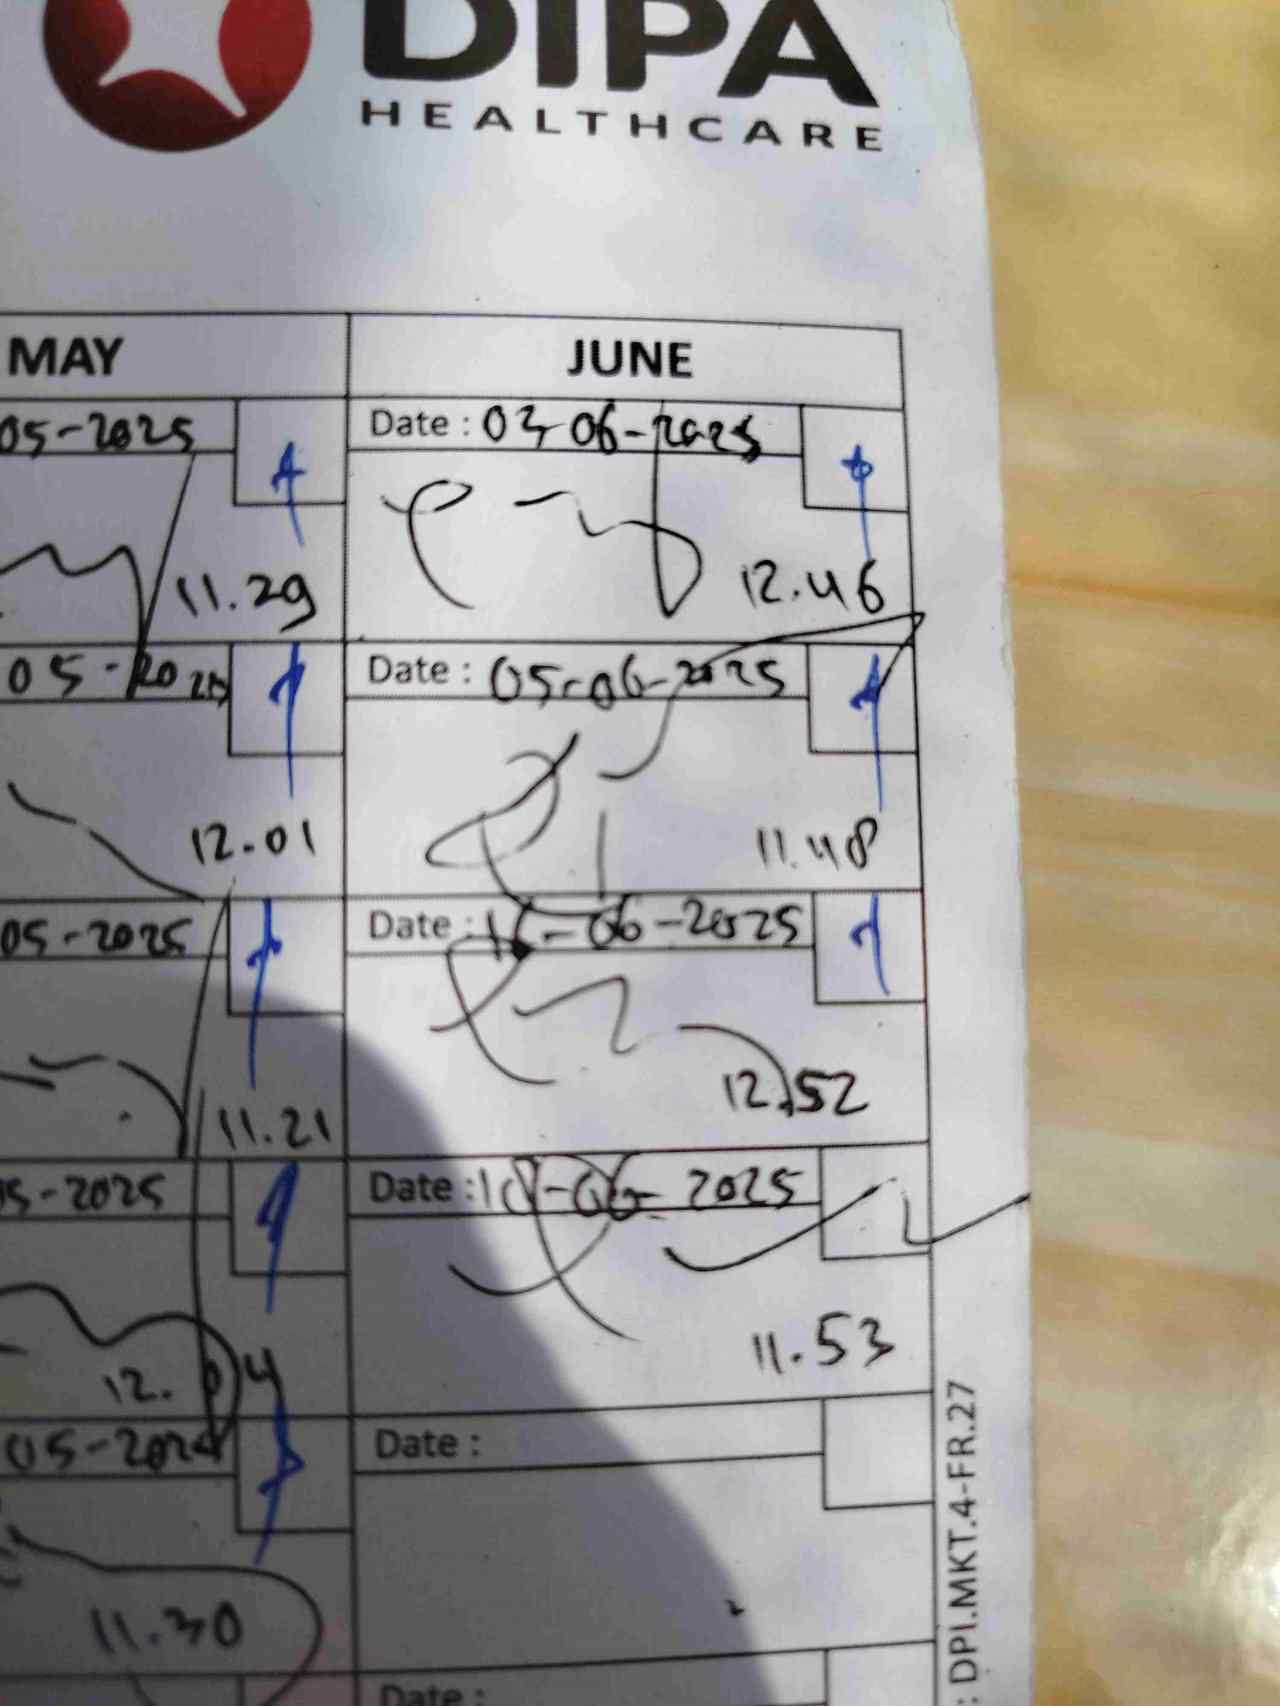 DIPA
HEALTHCARE
MAY
JUNE
05-2025
Date : 03-06-2025
11.29
12.46
05-2025
Date : 05-06-2025
12.01
11.48
05-2025
Date : 16-06-2025
11.21
12.52
05-2025
Date : -06-2025
12.04
11.53
05-2025
Date :
11.30
Date :
: DPI.MKT.4-FR.27